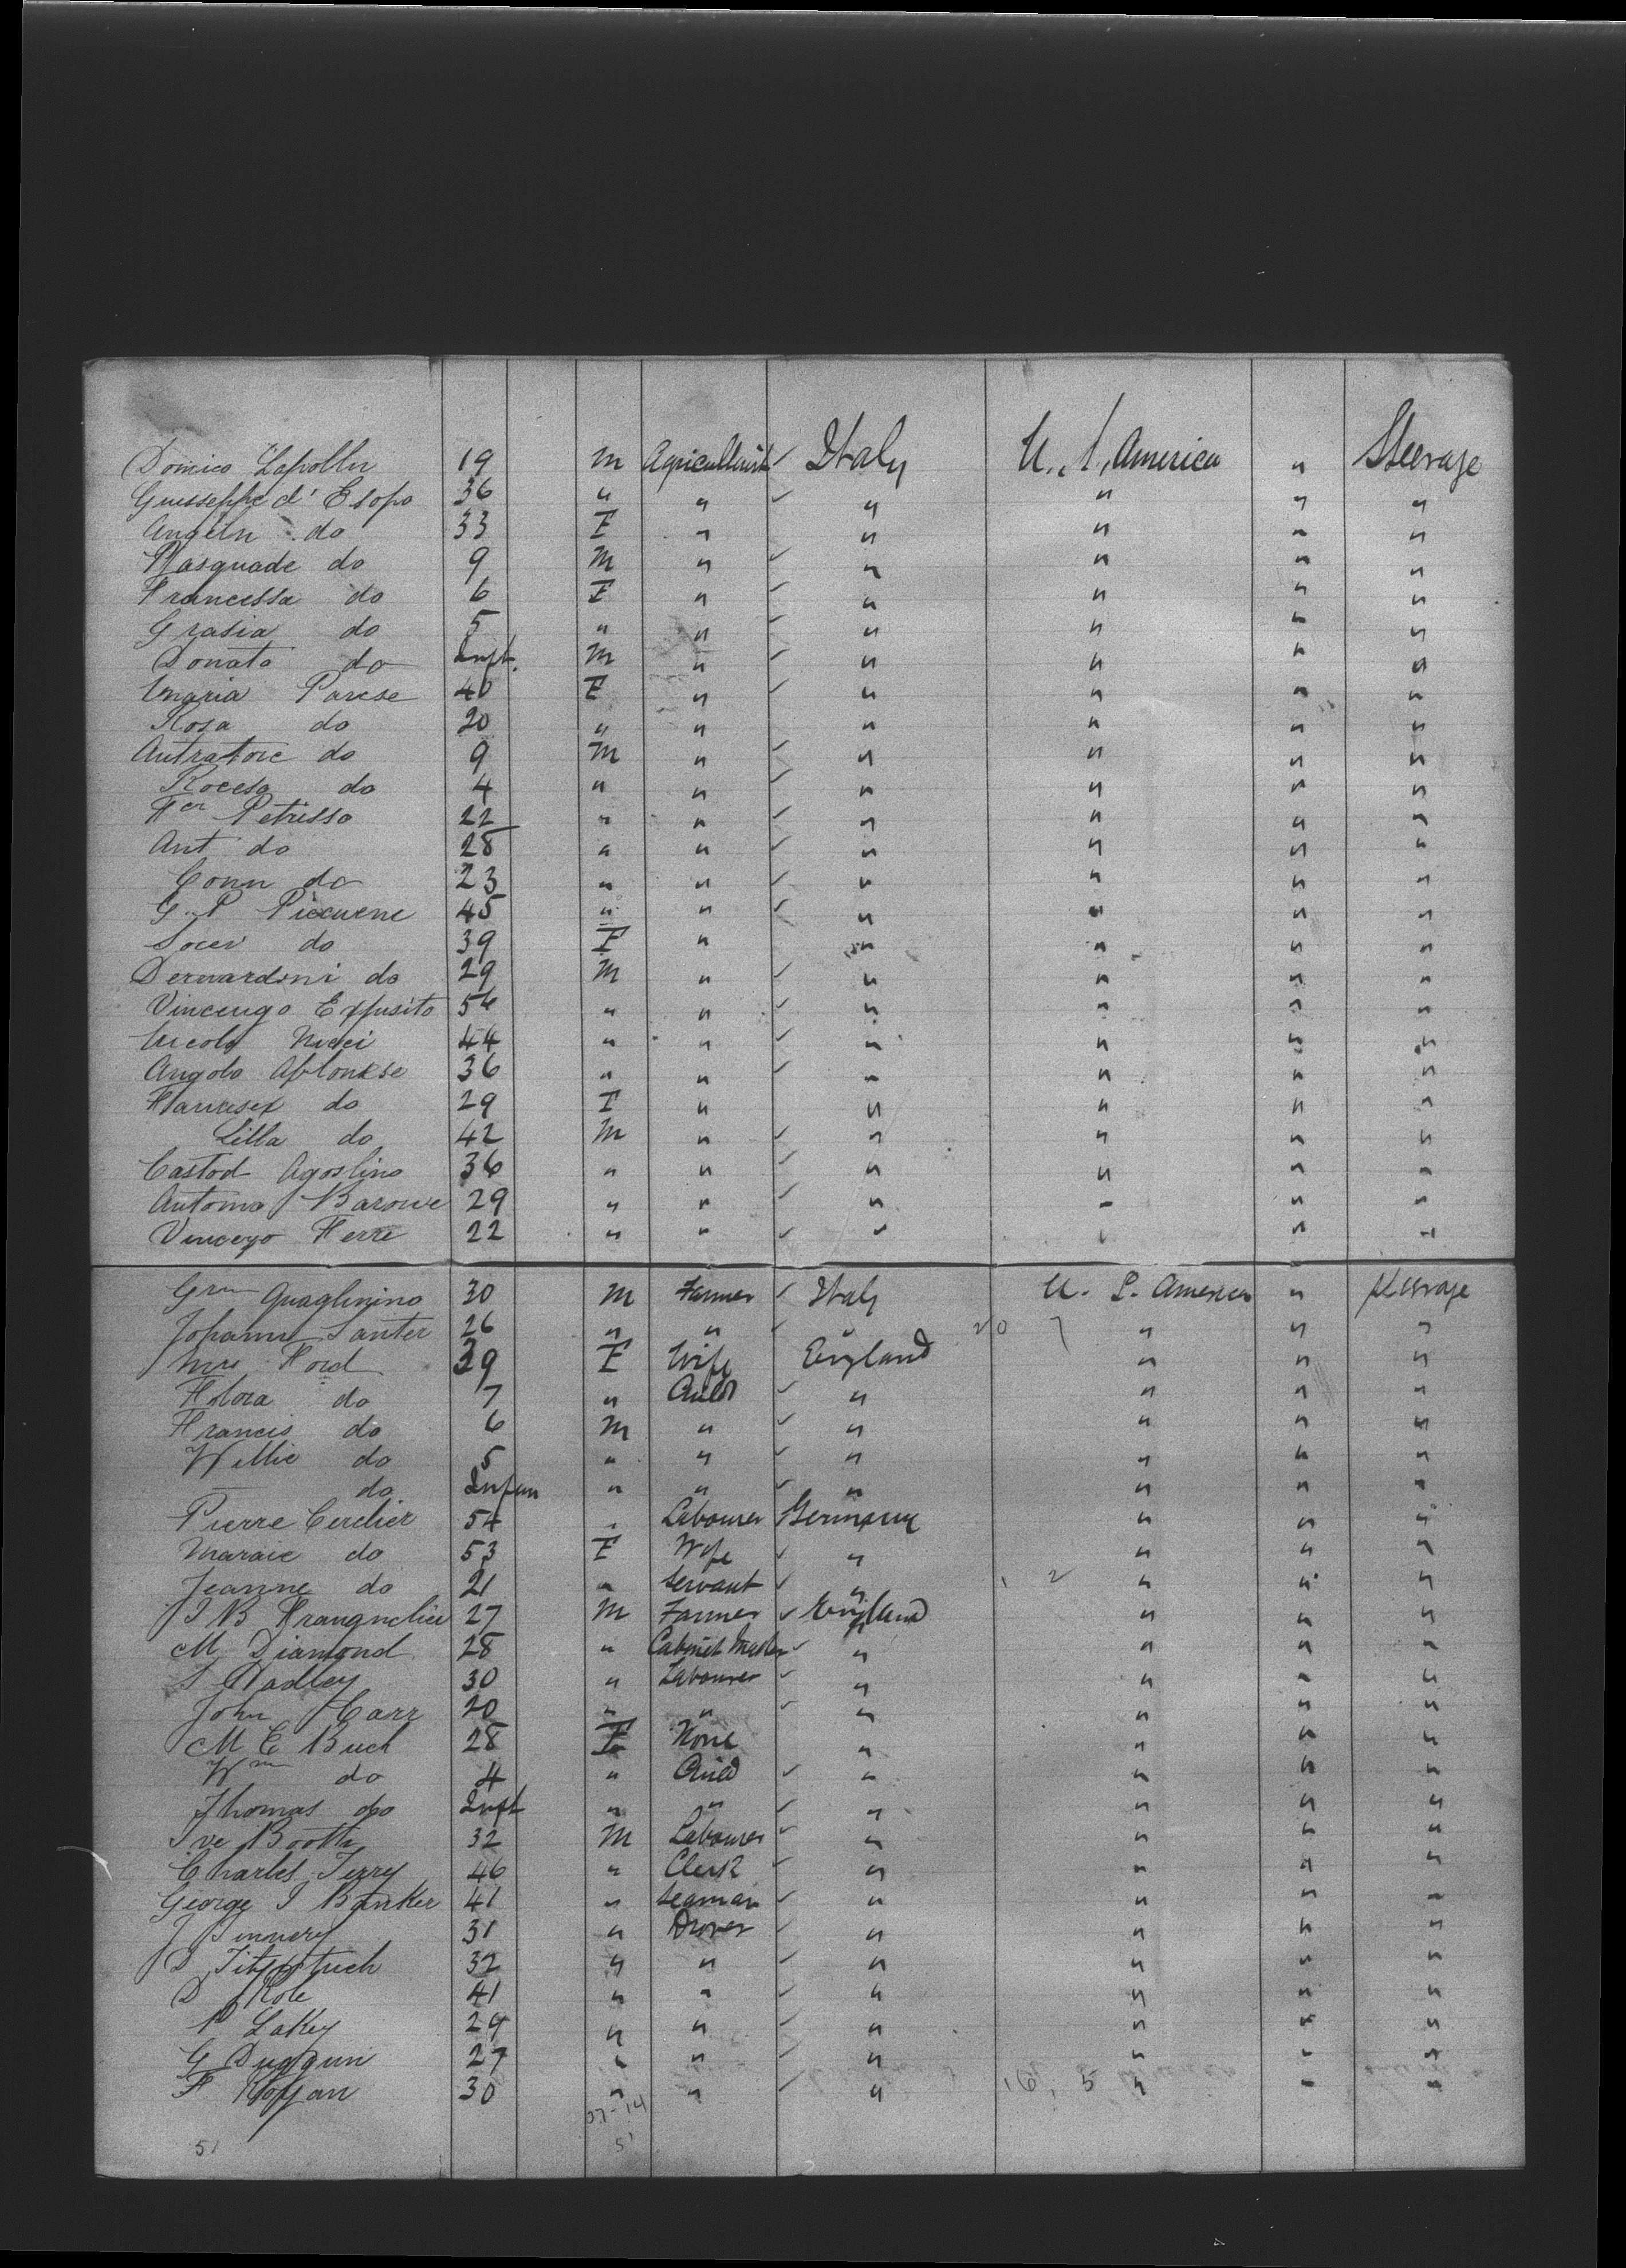 Domico Lapolla 19 M Agriculturist ✓ Italy U. S. America " Steerage
Guesseppe d' Esopo 36 " " ✓ " " " "
Angeln do 33 F " " " " "
Pasquade do 9 M " ✓ " " " "
Francessa do 6 F " ✓ " " " "
Grasia do 5 " " ✓ " " " "
Donato do Inft. M " ✓ " " " "
Maria Parese 40 F " ✓ " " " "
Rosa do 20 " " " " " "
Autratore do 9 M " ✓ " " " "
Rocesa do 4 " " ✓ " " " "
Fer Petrisso 22 " " ✓ " " " "
Ant do 28 " " ✓ " " " "
Conn do 23 " " ✓ " " " "
G. P Piecuene 45 " " ✓ " " " "
Socer do 39 F " " " " "
Dernardini do 29 M " ✓ " " " "
Vincengo Expusito 56 " " ✓ " " " "
Nicola Nucci 44 " " ✓ " " " "
Angolo Aflonese 36 " " ✓ " " " "
Francisex do 29 F " " " " "
Lilla do 42 M " ✓ " " " "
Castod Agoslino 36 " " ✓ " " " "
Antonio Barowe 29 " " ✓ " " " "
Vincego Ferre 22 " " ✓ " " " "
Grm Quaglinino 30 M Farmer ✓ Italy U. S. America " Steerage
Johanne Santer 26 " " ✓ " 20 7 " " "
Mrs Ford 39 F Wife England " " "
Flora do 7 " Child ✓ " " " "
Francis do 6 M " ✓ " " " "
Willie do 5 " " ✓ " " " "
— do Infan " " ✓ " " " "
Pierre Cerelier 54 " Labourer Germany " " "
Maraie do 53 F Wife ✓ " " " "
Jeanne do 21 " Servant ✓ " 1 2 " " "
J B Frangnelier 27 M Farmer ✓ England " " "
M Diamond 28 " Cabinet Maker ✓ " " " "
S Hadley 30 " Labourer ✓ " " " "
John Carr 20 " " ✓ " " " "
M E Buch 28 F None " " " "
Wm do 4 " Child ✓ " " " "
Thomas do Inft " " ✓ " " " "
Ive Booth 32 M Labourer ✓ " " " "
Charles Terry 46 " Clerk ✓ " " " "
George I Banker 41 " Seaman ✓ " " " "
J Sinnery 31 " Drover ✓ " " " "
Fitzptrich 32 " " ✓ " " " "
D Role 41 " " ✓ " " " "
P Lakey 29 " " ✓ " " " "
G Duggun 27 " " ✓ " " " "
F Rogan 30 " " ✓ " 16, 5 " " "
37-14
51 51